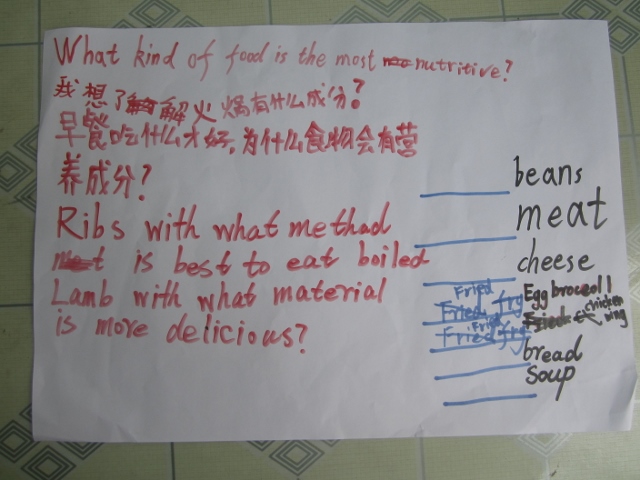 What kind of food is the most nutritive?
我想了解火焗有什么成分?
早餐吃什么才好,为什么食物会有营
养成分?
Ribs with what methad
is best to eat boiled
Lamb with what material
is more delicious?
beans
meat
cheese
Fried Egg broccoli
Fried fry chicken wing
Fried Fried fry
bread
soup